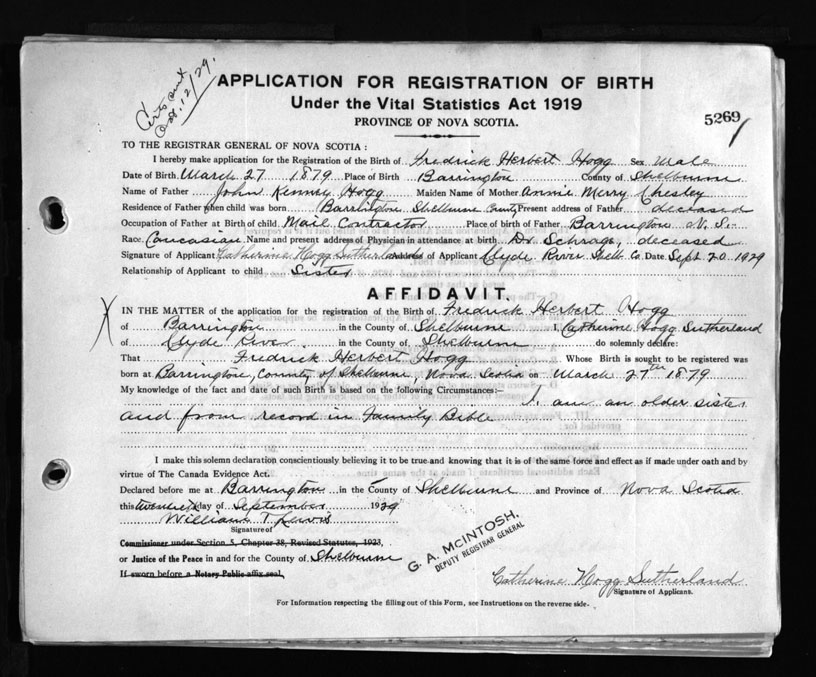 Cert sent
Oct. 12/29.
APPLICATION FOR REGISTRATION OF BIRTH
Under the Vital Statistics Act 1919
PROVINCE OF NOVA SCOTIA.
5269
TO THE REGISTRAR GENERAL OF NOVA SCOTIA:
I hereby make application for the Registration of the Birth of Fredrick Herbert Hogg Sex Male
Date of Birth March 27 1879 Place of Birth Barrington County of Shelburne
Name of Father John Kenney Hogg Maiden Name of Mother Annie Merry Chesley
Residence of Father when child was born Barrington Shelburne County Present address of Father deceased
Occupation of Father at Birth of child Mail Contractor Place of birth of Father Barrington N. S.
Race Caucasian Name and present address of Physician in attendance at birth Dr. Schrage, deceased
Signature of Applicant Catherine Hogg Sutherland Address of Applicant Clyde River Shelb. Co. Date Sept 20 1929
Relationship of Applicant to child Sister
AFFIDAVIT.
IN THE MATTER of the application for the registration of the Birth of Fredrick Herbert Hogg
of Barrington in the County of Shelburne I, Catherine Hogg Sutherland
of Clyde River in the County of Shelburne do solemnly declare:
That Fredrick Herbert Hogg Whose Birth is sought to be registered was
born at Barrington, County of Shelburne, Nova Scotia on March 27th 1879
My knowledge of the fact and date of such Birth is based on the following Circumstances:—
I am an older sister
and from record in Family Bible
I make this solemn declaration conscientiously believing it to be true and knowing that it is of the same force and effect as if made under oath and by
virtue of The Canada Evidence Act.
Declared before me at Barrington in the County of Shelburne and Province of Nova Scotia
this twentieth day of September 1929
William T. Lewis
Signature of
Commissioner under Section 5, Chapter 38, Revised Statutes, 1923,
or Justice of the Peace in and for the County of Shelburne
If sworn before a Notary Public affix seal,
G. A. McINTOSH,
DEPUTY REGISTRAR GENERAL
Catherine Hogg Sutherland
Signature of Applicants.
For Information respecting the filling out of this Form, see Instructions on the reverse side.